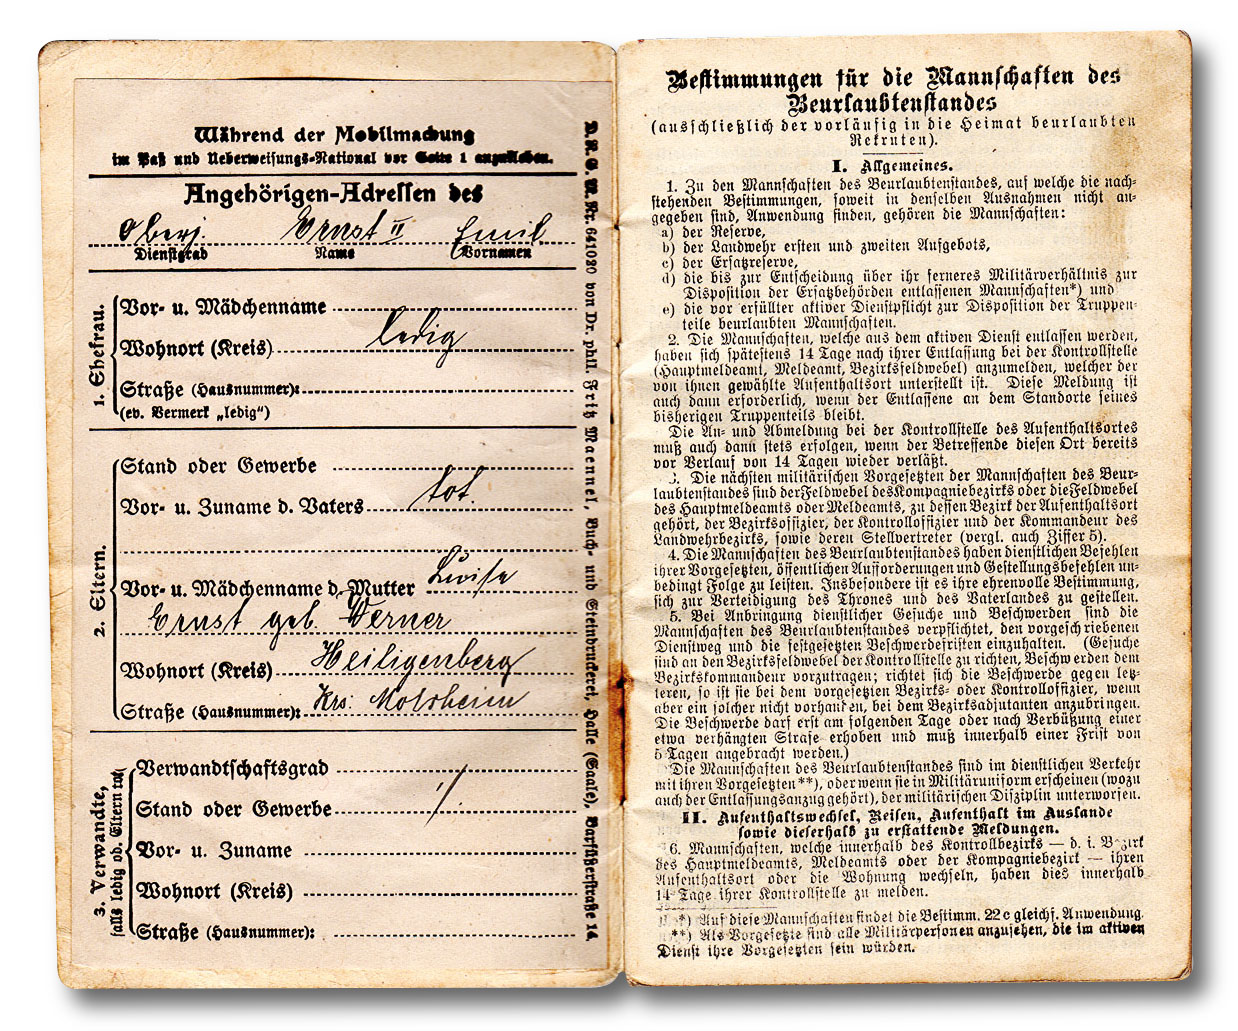 Während der Mobilmachung
im Paß und Ueberweisungs-National vor Seite 1 anzukleben.
Angehörigen-Adressen des
Oberj. Ernst II Emil
Dienstgrad Name Vornamen
1. Ehefrau.
Vor- u. Mädchenname
ledig
Wohnort (Kreis)
Straße (Hausnummer):
(ev. Vermerk „ledig“)
2. Eltern.
Stand oder Gewerbe
tot.
Vor- u. Zuname d. Vaters
Vor- u. Mädchenname d. Mutter Luise
Ernst geb. Werner
Wohnort (Kreis) Heiligenberg
Straße (Hausnummer): Krs: Molsheim
3. Verwandte,
falls ledig od. Eltern tot
Verwandtschaftsgrad
Stand oder Gewerbe
Vor- u. Zuname
Wohnort (Kreis)
Straße (Hausnummer):
D. R. G. M. Nr. 641020 von Dr. phil. Fritz Maennel, Buch- und Steindruckerei, Halle (Saale), Barfüßerstraße 14.
Bestimmungen für die Mannschaften des
Beurlaubtenstandes
(ausschließlich der vorläufig in die Heimat beurlaubten
Rekruten).
I. Allgemeines.
1. Zu den Mannschaften des Beurlaubtenstandes, auf welche die nach-
stehenden Bestimmungen, soweit in denselben Ausnahmen nicht an-
gegeben sind, Anwendung finden, gehören die Mannschaften:
a) der Reserve,
b) der Landwehr ersten und zweiten Aufgebots,
c) der Ersatzreserve,
d) die bis zur Entscheidung über ihr ferneres Militärverhältnis zur
Disposition der Ersatzbehörden entlassenen Mannschaften*) und
e) die vor erfüllter aktiver Dienstpflicht zur Disposition der Truppen-
teile beurlaubten Mannschaften.
2. Die Mannschaften, welche aus dem aktiven Dienst entlassen werden,
haben sich spätestens 14 Tage nach ihrer Entlassung bei der Kontrollstelle
(Hauptmeldeamt, Meldeamt, Bezirksfeldwebel) anzumelden, welcher der
von ihnen gewählte Aufenthaltsort unterstellt ist. Diese Meldung ist
auch dann erforderlich, wenn der Entlassene an dem Standorte seines
bisherigen Truppenteils bleibt.
Die An- und Abmeldung bei der Kontrollstelle des Aufenthaltsortes
muß auch dann stets erfolgen, wenn der Betreffende diesen Ort bereits
vor Verlauf von 14 Tagen wieder verläßt.
3. Die nächsten militärischen Vorgesetzten der Mannschaften des Beur-
laubtenstandes sind der Feldwebel des Kompagniebezirks oder die Feldwebel
des Hauptmeldeamts oder Meldeamts, zu dessen Bezirk der Aufenthaltsort
gehört, der Bezirksoffizier, der Kontrolloffizier und der Kommandeur des
Landwehrbezirks, sowie deren Stellvertreter (vergl. auch Ziffer 5).
4. Die Mannschaften des Beurlaubtenstandes haben dienstlichen Befehlen
ihrer Vorgesetzten, öffentlichen Aufforderungen und Gestellungsbefehlen un-
bedingt Folge zu leisten. Insbesondere ist es ihre ehrenvolle Bestimmung,
sich zur Verteidigung des Thrones und des Vaterlandes zu gestellen.
5. Bei Anbringung dienstlicher Gesuche und Beschwerden sind die
Mannschaften des Beurlaubtenstandes verpflichtet, den vorgeschriebenen
Dienstweg und die festgesetzten Beschwerdefristen einzuhalten. (Gesuche
sind an den Bezirksfeldwebel der Kontrollstelle zu richten, Beschwerden dem
Bezirkskommandeur vorzutragen; richtet sich die Beschwerde gegen letz-
teren, so ist sie bei dem vorgesetzten Bezirks- oder Kontrolloffizier, wenn
aber ein solcher nicht vorhanden, bei dem Bezirksadjutanten anzubringen.
Die Beschwerde darf erst am folgenden Tage oder nach Verbüßung einer
etwa verhängten Strafe erhoben und muß innerhalb einer Frist von
5 Tagen angebracht werden.)
Die Mannschaften des Beurlaubtenstandes sind im dienstlichen Verkehr
mit ihren Vorgesetzten**), oder wenn sie in Militäruniform erscheinen (wozu
auch der Entlassungsanzug gehört), der militärischen Disziplin unterworfen.
II. Aufenthaltswechsel, Reisen, Aufenthalt im Auslande
sowie dieserhalb zu erstattende Meldungen.
6. Mannschaften, welche innerhalb des Kontrollbezirks — d. i. Bezirk
des Hauptmeldeamts, Meldeamts oder der Kompagniebezirk — ihren
Aufenthaltsort oder die Wohnung wechseln, haben dies innerhalb
14 Tage ihrer Kontrollstelle zu melden.
*) Auf diese Mannschaften findet die Bestimm. 22c gleichf. Anwendung.
**) Als Vorgesetzte sind alle Militärpersonen anzusehen, die im aktiven
Dienst ihre Vorgesetzten sein würden.